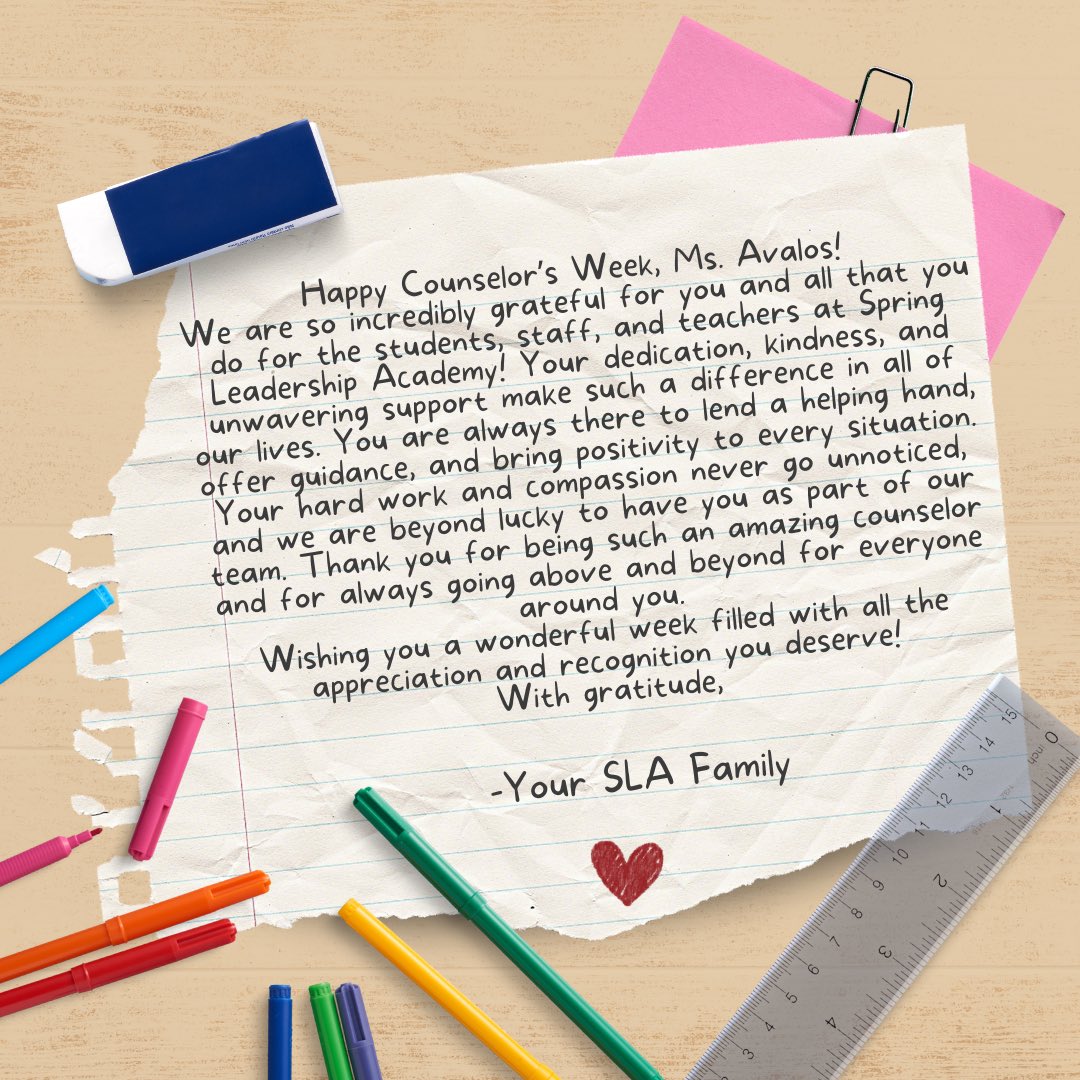 Happy Counselor's Week, Ms. Avalos!
We are so incredibly grateful for you and all that you
do for the students, staff, and teachers at Spring
Leadership Academy! Your dedication, kindness, and
unwavering support make such a difference in all of
our lives. You are always there to lend a helping hand,
offer guidance, and bring positivity to every situation.
Your hard work and compassion never go unnoticed,
and we are beyond lucky to have you as part of our
team. Thank you for being such an amazing counselor
and for always going above and beyond for everyone
around you.
Wishing you a wonderful week filled with all the
appreciation and recognition you deserve!
With gratitude,
-Your SLA Family
15
14
13
12
11
10
9
8
7
6
5
4
3
0
inch
1
2
3
4